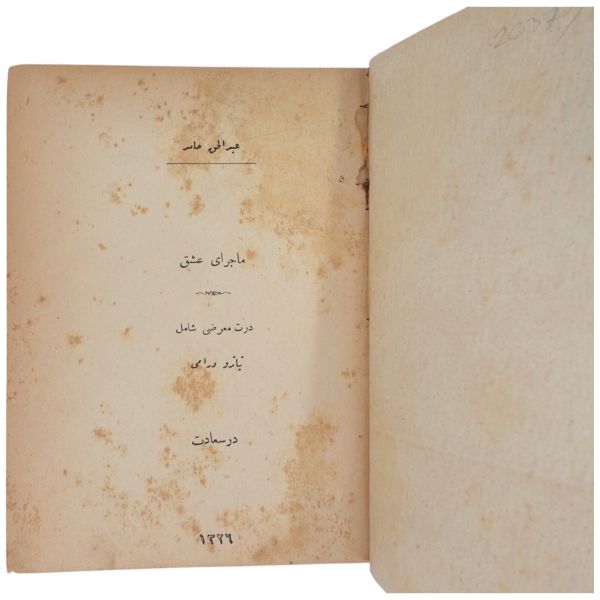 2037/
عبدالحق حامد
ماجرای عشق
درت معرضی شامل
تیاترو درامی
درسعادت
١٣٢٦